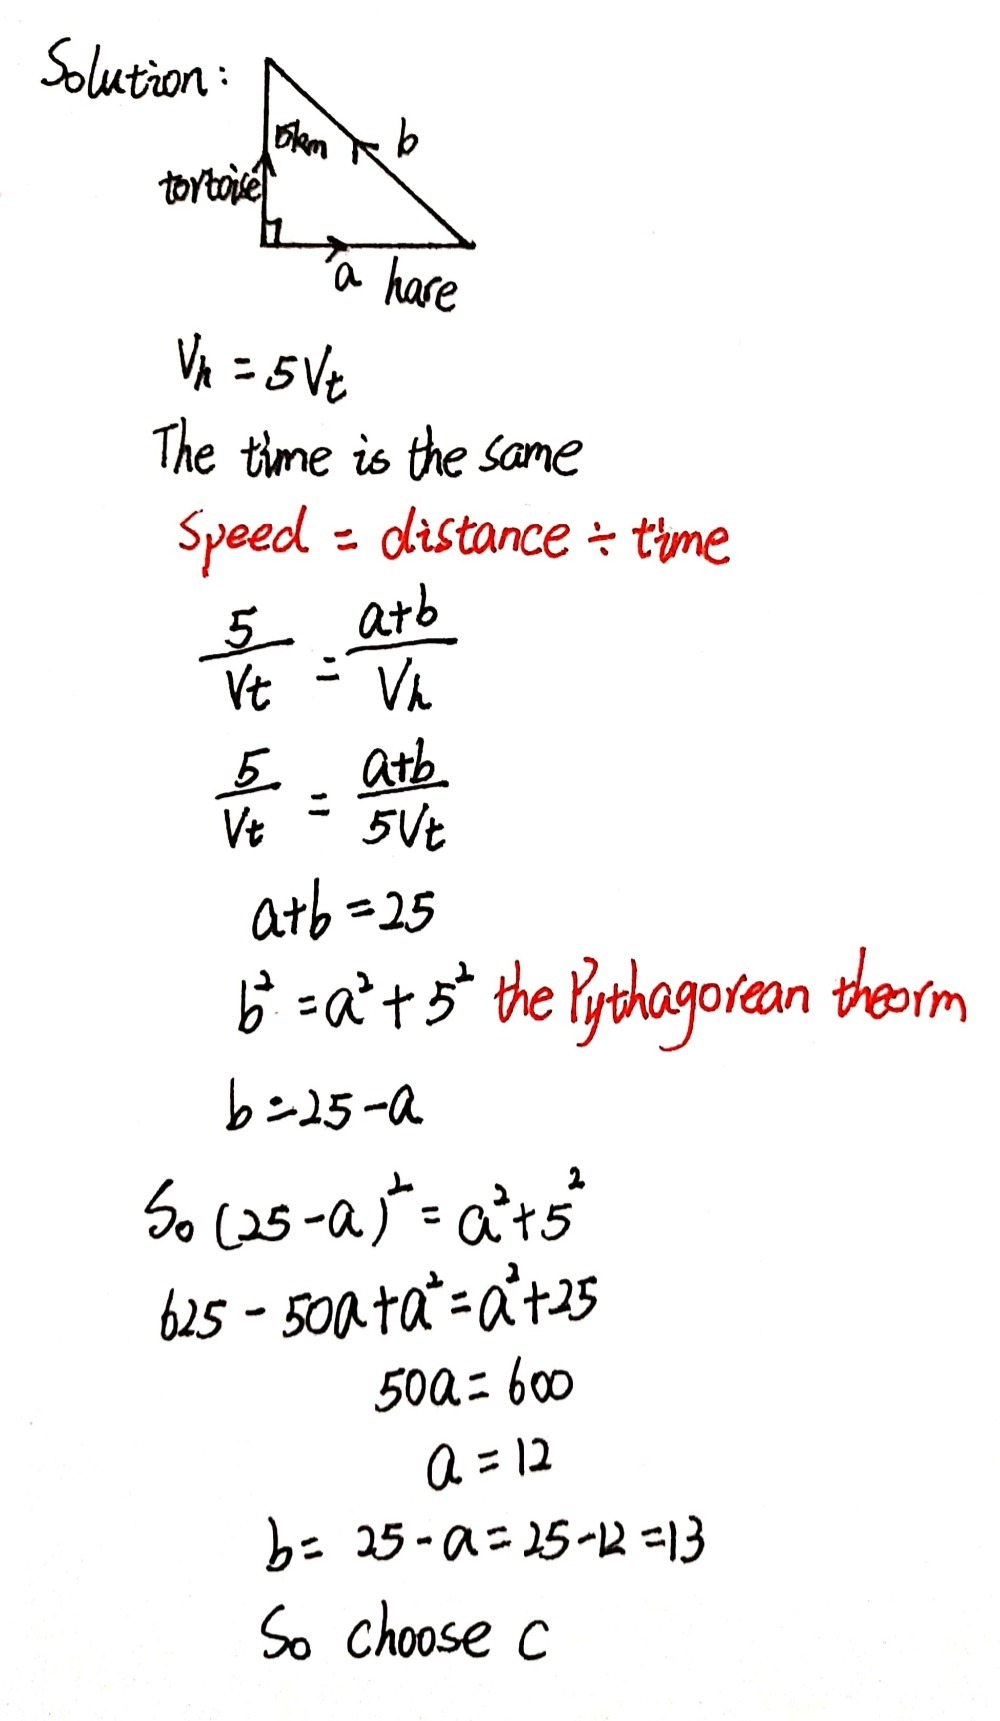 Solution:
5km
b
tortoise
a hare
Vh = 5Vt
The time is the same
Speed = distance ÷ time
5/Vt = a+b/Vh
5/Vt = a+b/5Vt
a+b = 25
b² = a² + 5² the Pythagorean theorm
b = 25 - a
So (25 - a)² = a² + 5²
625 - 50a + a² = a² + 25
50a = 600
a = 12
b = 25 - a = 25 - 12 = 13
So choose C